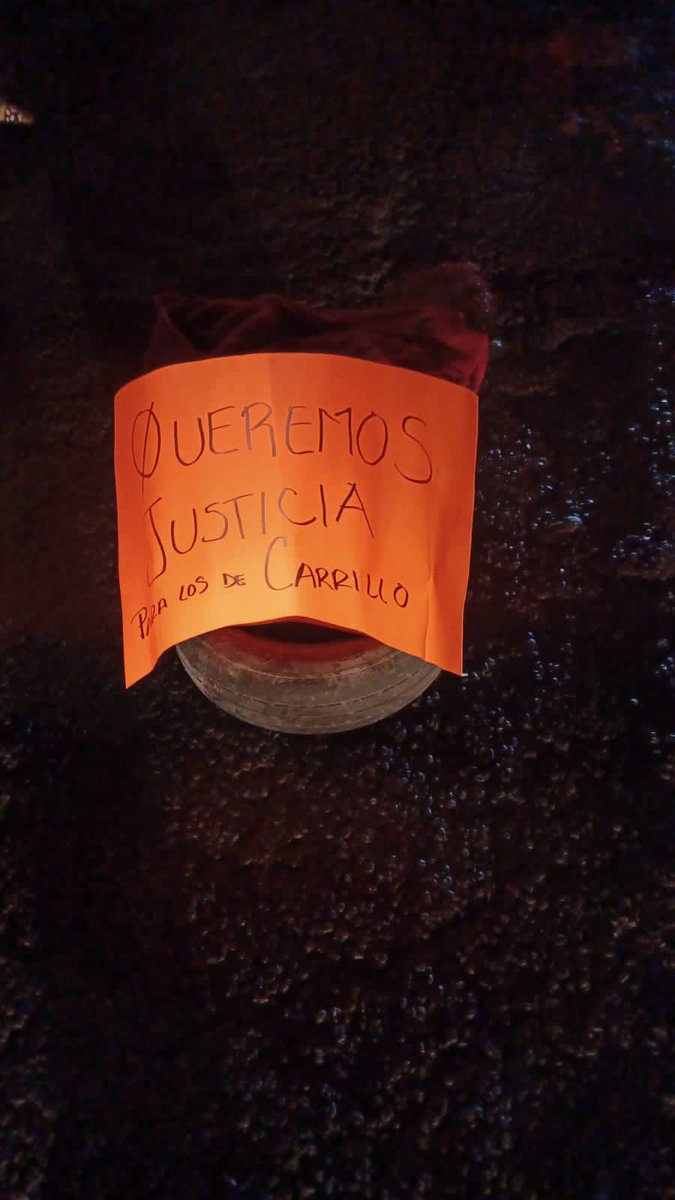 QUEREMOS
JUSTICIA
PARA LOS DE CARRILLO